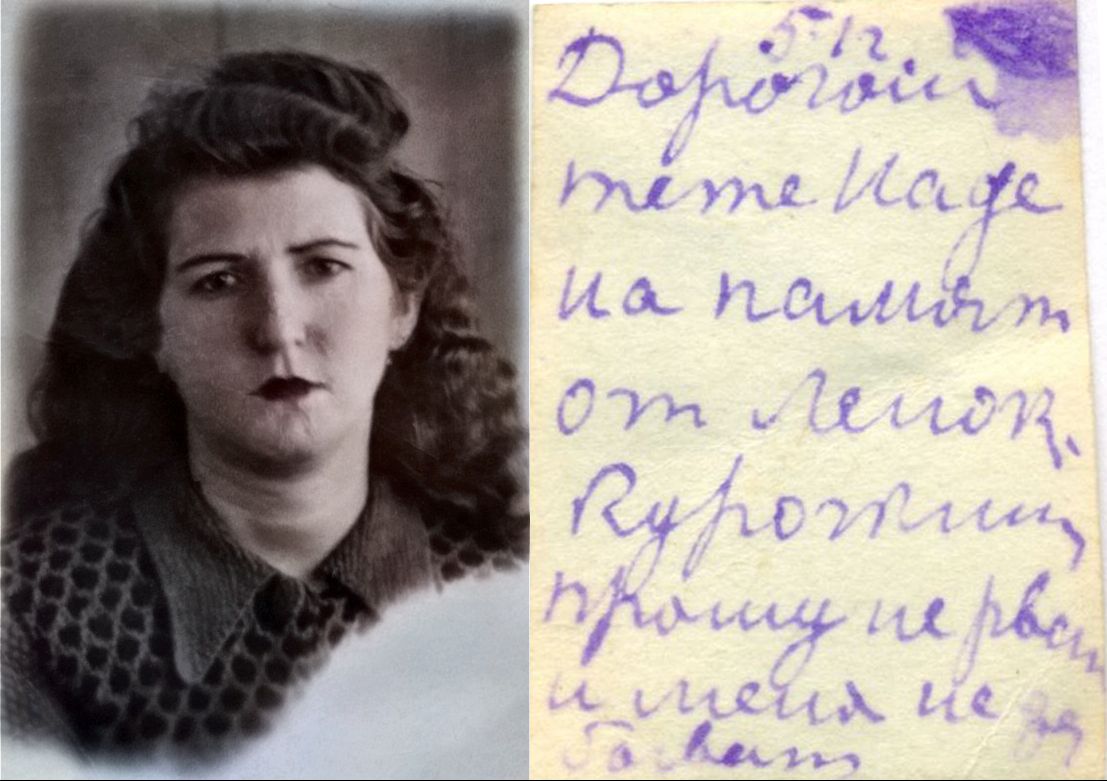 5.12
Дорогой
тете Наде
на память
от Ленок.
прошу не рват
и меня не за
бават